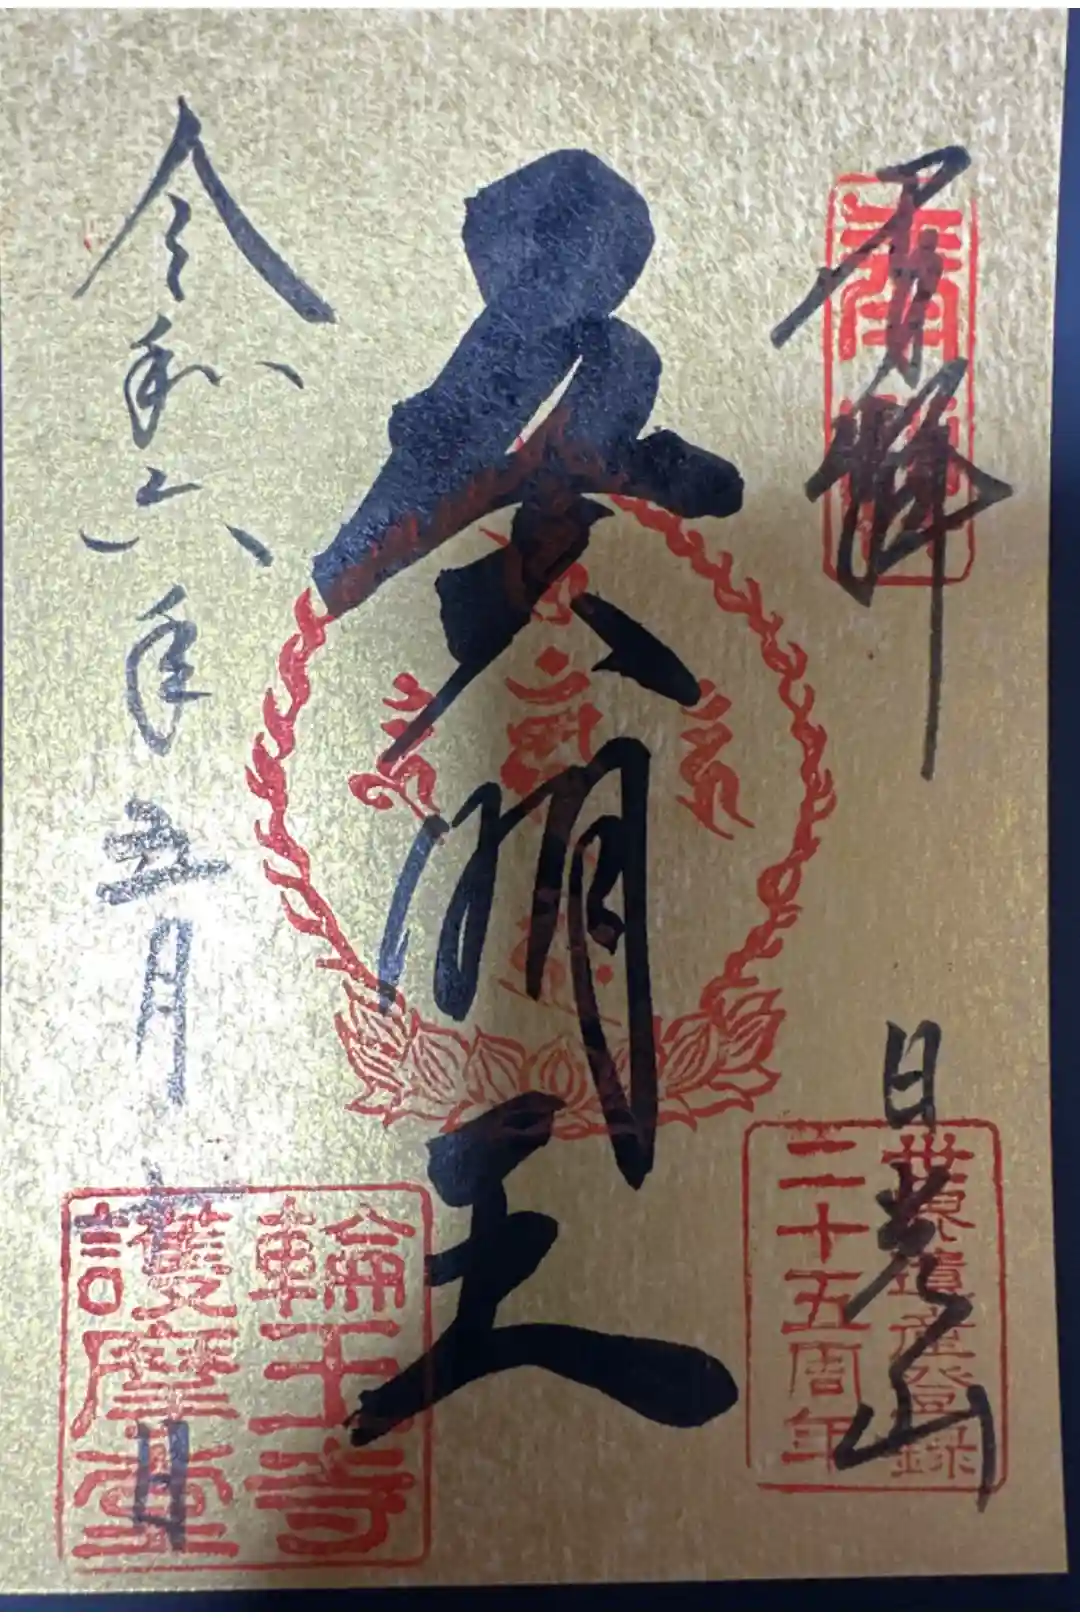 奉拝
日光山
世界遺産登録
二十五周年
五大明王
令和六年五月 日
輪王寺
護摩堂